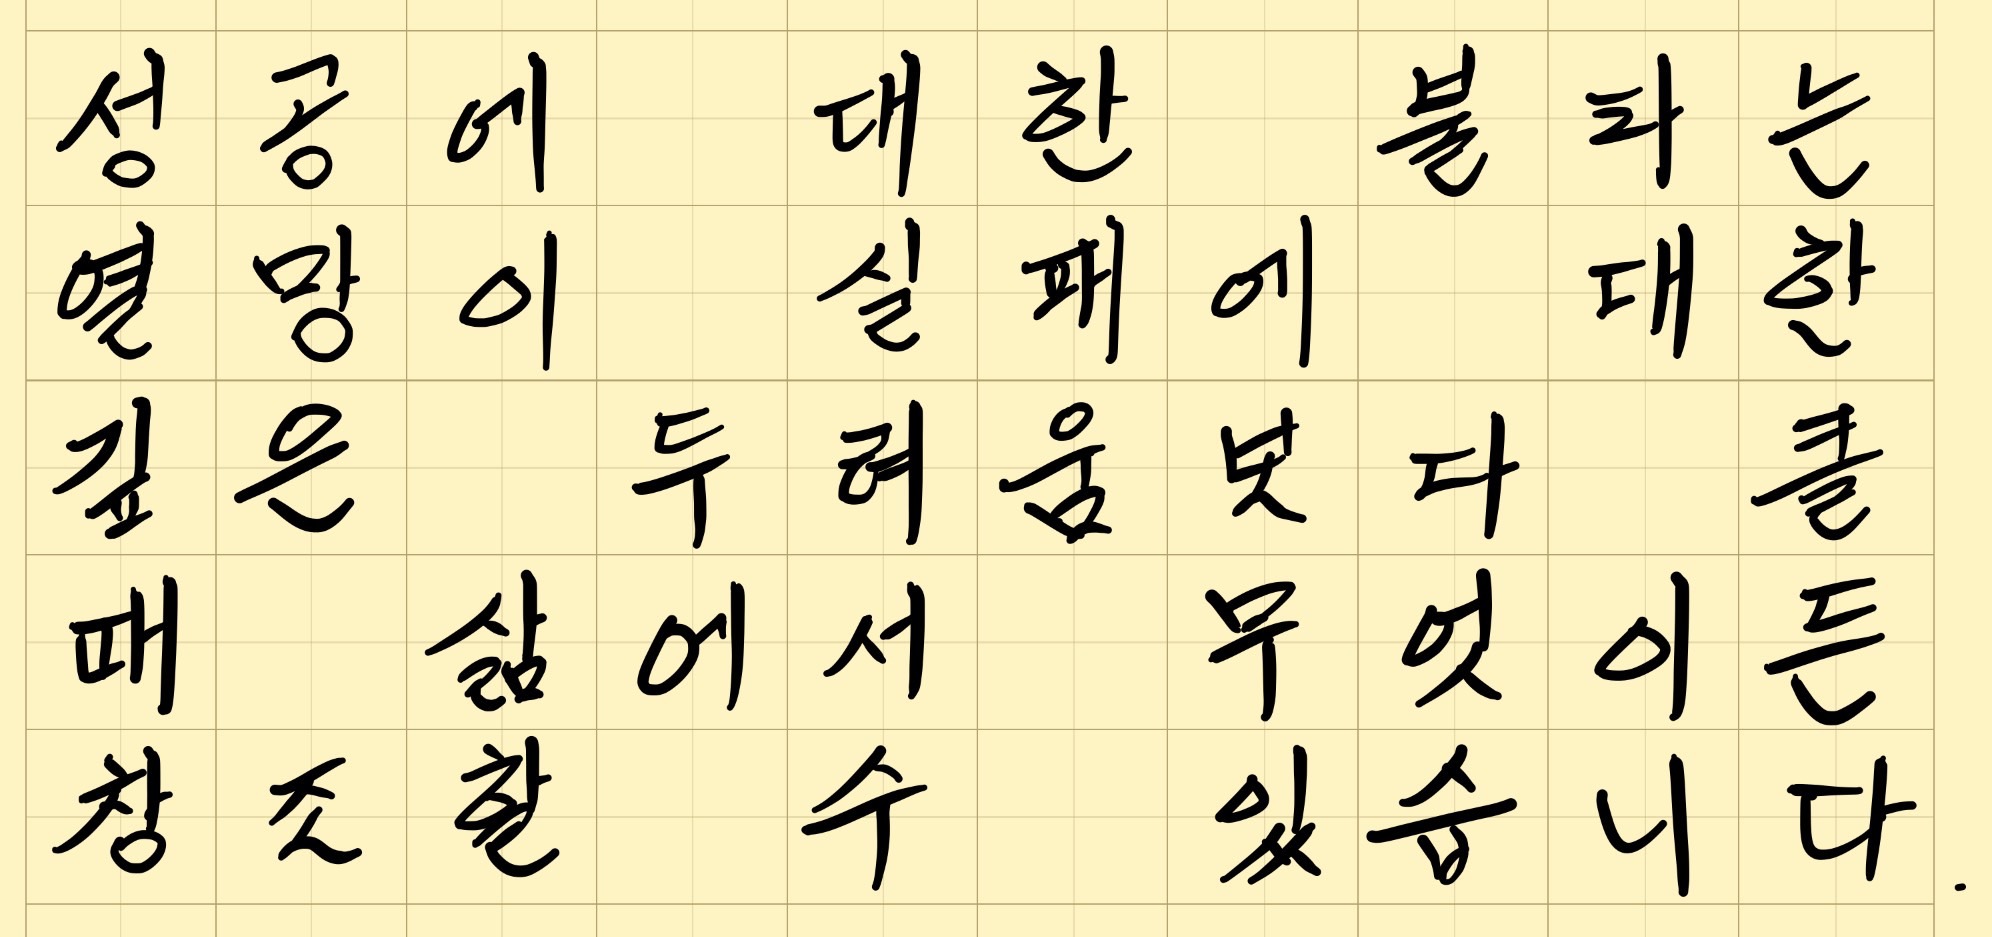 성공에 대한 불타는
열망이 실패에 대한
깊은 두려움보다 클
때 삶에서 무엇이든
창조할 수 있습니다.